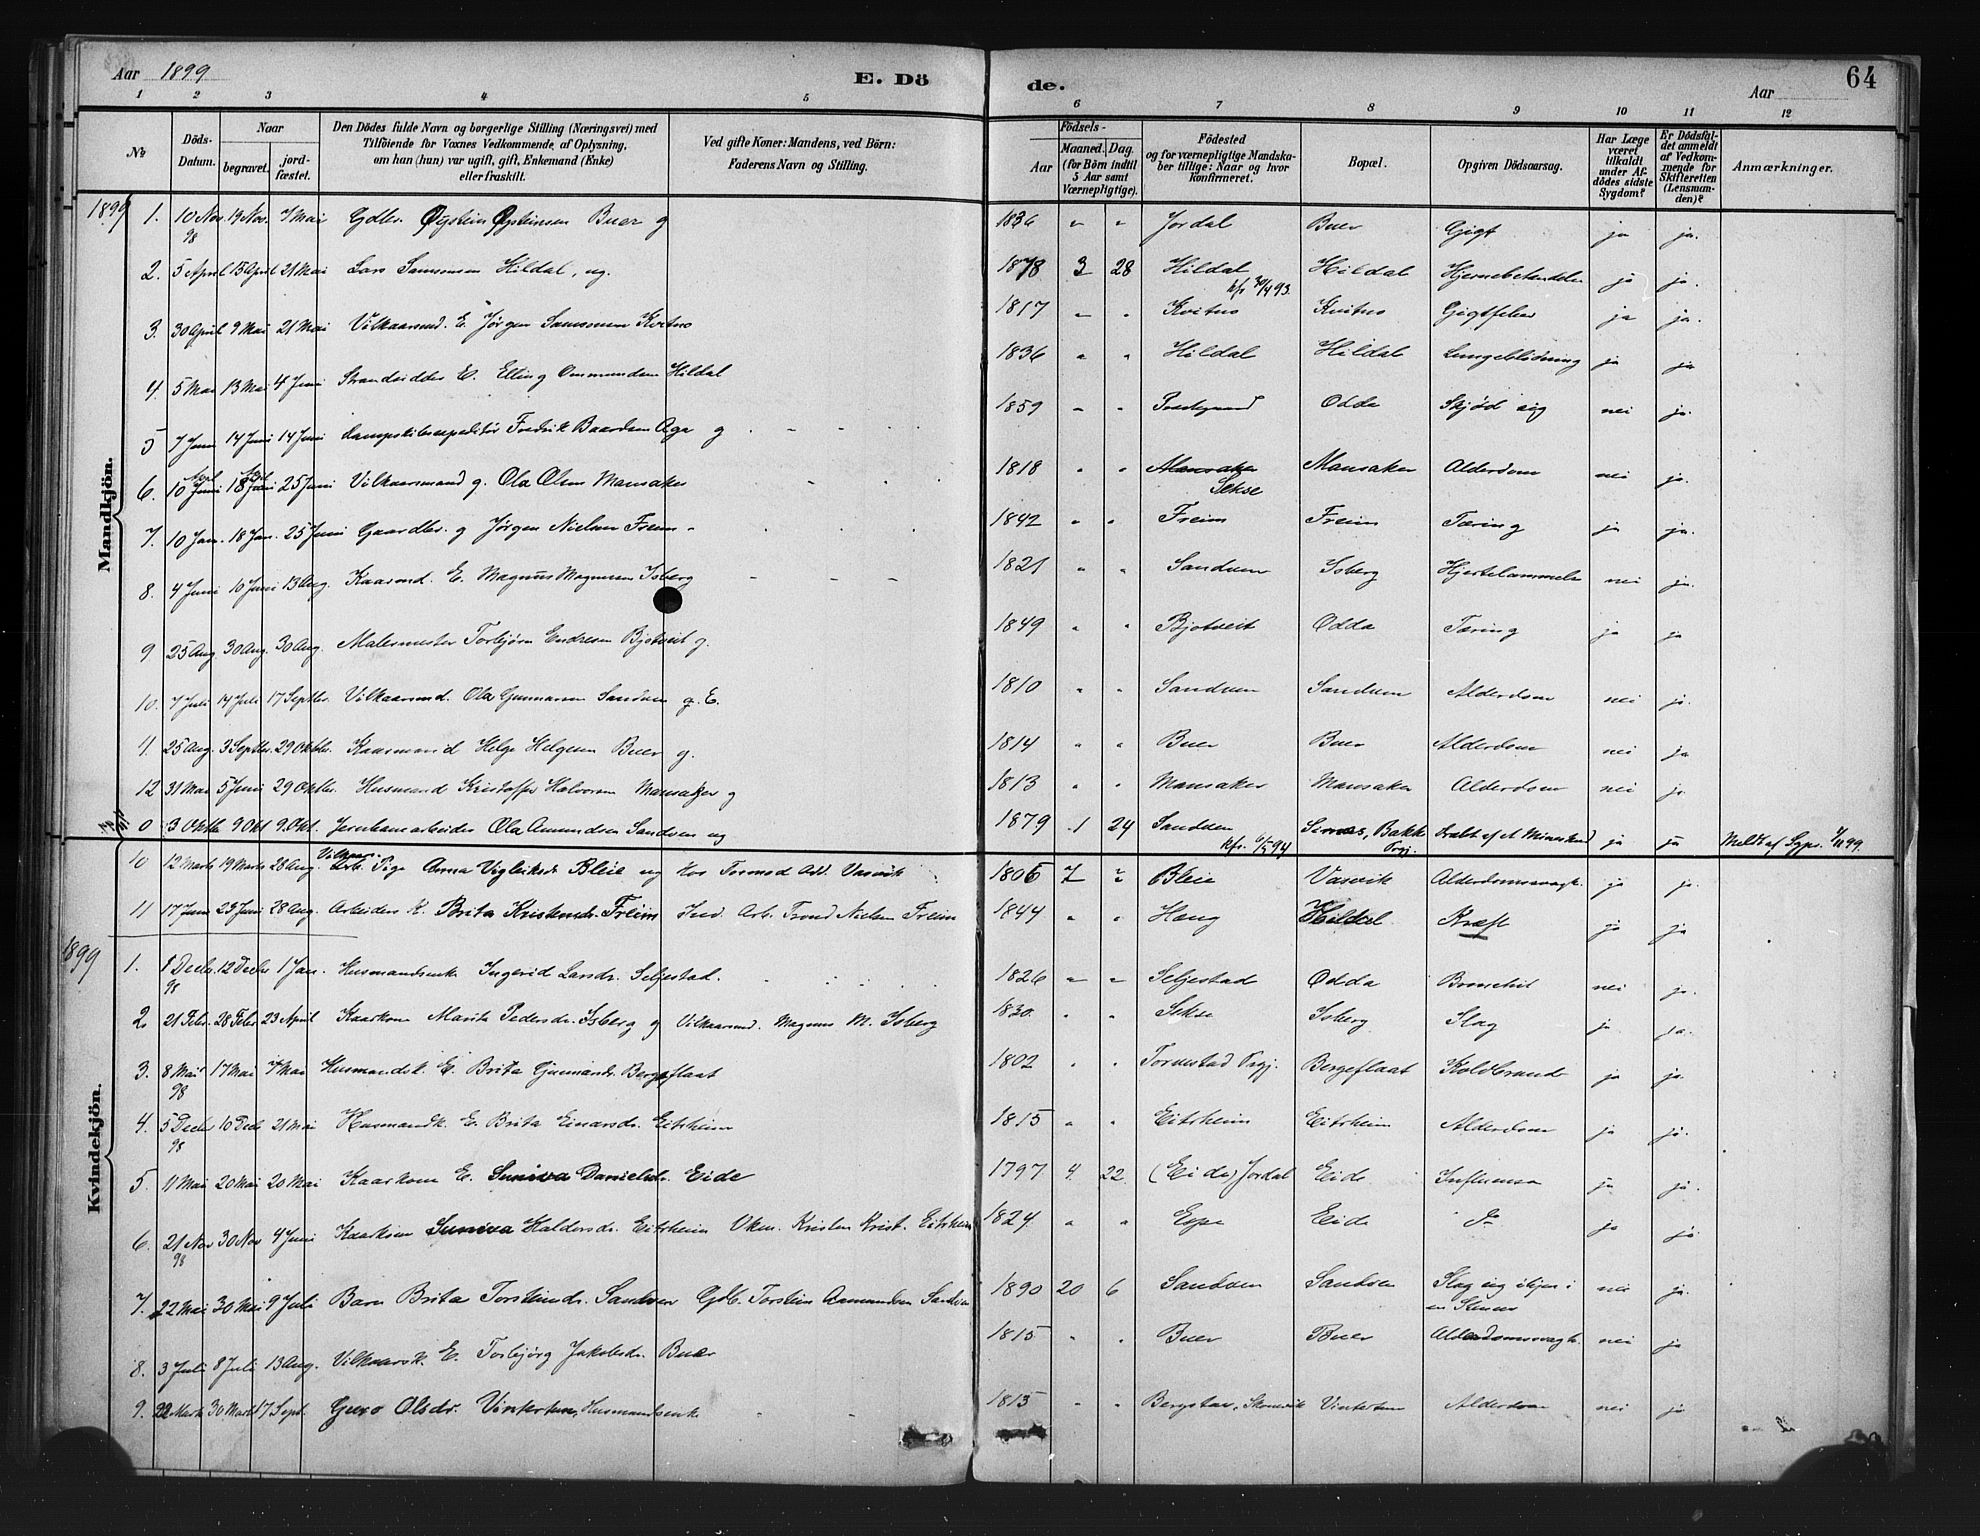 Aar 1899
E. Dö
de.
Aar
64
1 2 3 4 5 6 7 8 9 10 11 12
№
Döds-Datum.
Naar
begravet.
jord-fæstet.
Den Dödes fulde Navn og borgerlige Stilling (Næringsvei) med
Tilföiende for Voxnes Vedkommende, af Oplysning,
om han (hun) var ugift, gift, Enkemand (Enke)
eller fraskilt.
Ved gifte Koner: Mandens, ved Börn:
Faderens Navn og Stilling.
Födsels-
Aar
Maaned. Dag.
(for Börn indtil
5 Aar samt
Værnepligtige).
Födested
og for værnepligtige Mandska-
ber tillige: Naar og hvor
konfirmeret.
Bopæl.
Opgiven Dödsaarsag.
Har Læge
været
tilkaldt
under Af-
dödes sidste
Sygdom?
Er Dödsfal-
det anmeldt
af Vedkom-
mende for
Skifteretten
(Lensman-
den)?
Anmærkninger.
Mandkjön.
1899 1. 10 Nov. 98 19 Nov. 7 Mai Gdbr. Øystein Øysteinsen Buer g 1836 " " Jordal Buer Gigt ja ja.
2. 5 April 15 April 21 Mai Lars Samsonsen Hildal, ug. 1878 3 28 Hildal Hildal ja ja.
3. 30 April 9 Mai 21 Mai Vilkaarsmd. E. Jørgen Samsonsen Kvitno 1817 " " Kvitno Kvitno Gigtfeber ja ja.
4. 5 Mai 13 Mai 4 Juni Strandsidder E. Elling Ommundsen Hildal 1836 " " Hildal Hildal Lungeblödning ja ja
5 7 Juni 14 Juni 14 Juni Dampskibsexpeditör Fredrik Baardsen Aga g 1859 " " Odda Skjød sig nei ja.
6. 10 April 18 April 25 Juni Vilkaarsmand g. Ola Olsen Mansaker 1818 " " Sekse Mansaker Alderdom nei ja.
7. 10 Jan. 18 Jan. 25 Juni Gaardbr. g Jørgen Nielsen Freim 1842 " " Freim Freim Tæring ja ja.
8. 4 Juni 10 Juni 13 Aug. Kaarmd. E. Magnus Magnussen Isberg 1821 " " Sandven Isberg Hjertelammelse nei ja.
9 25 Aug. 30 Aug. 30 Aug. Malermester Torbjørn Endresen Bjotveit g. 1849 " " Bjotveit Odda Tæring ja ja
10. 7 Juli 14 Juli 17 Septbr. Vilkaarsmd. Ola Gunnarsen Sandven g. E. 1810 " " Sandven Sandven Alderdom nei ja.
11. 25 Aug. 3 Septbr. 29 Oktbr. Kaarmand Helge Helgesen Buer g. 1814 " " Buer Buer Alderdom nei ja
12 31 Mai 5 Juni 29 Oktbr. Husmand Kristoffer Halvorsen Mansaker g 1813 " " Mansaker Mansaker Alderdom nei ja
0 3 Oktb 9 Okt 9. Okt. Jernbanearbeider Ola Amundsen Sandven ug 1879 1 24 Sandven kfr. 94 Bakke Prgj. Dræbt af et Mineskud ja ja Meldt af Sgpr. 99.
10 12 Marts 19 Marts 28 Aug. Pige Anna Vigleiksdr Bleie ug Hos Tormod Vasvik 1806 7 2 Bleie Vasvik Alderdomssvagh. ja ja.
11 17 Juni 23 Juni 28 Aug. Arbeiders K. Brita Kristensdr. Freim Ind. Arb. Trond Nielsen Freim 1844 " " Haug Hildal Kræft ja ja
Kvindekjön.
1899 1. 1 Decbr 98 12 Decbr 1 Jan. Husmandsenke Ingerid Larsdr. Seljestad. 1826 " " Seljestad Odda nei ja.
2. 21 Febr. 28 Febr 23 April Kaarkone Marita Pedersdr. Isberg g Vilkaarsmd. Magnus M. Isberg 1830. " " Sekse Isberg Slag ja ja.
3. 8 Mai 98 17 Mai 7 Mai Husmandsk. E. Brita Gunnarsdr. Bergeflaat 1802 " " Prgj. Bergeflaat Koldbrand ja ja.
4. 5 Decbr 98 10 Decb 21 Mai Husmandk. E. Brita Einarsdr. Eitrheim 1815 " " Eitrheim Eitrheim Alderdom ja ja.
5. 11 Mai 20 Mai 20 Mai Kaarkone E. Suniva Danielsdr. Eide 1797 4. 22 (Eide) Jordal Eide Influensa ja ja.
6. 21 Nov 98 30 Nov 4 Juni Kaarkone Suniva Haldorsdr. Eitrheim Vkm. Kristen Krist. Eitrheim 1824 " " Espe Eide ja ja
7. 22 Mai 30 Mai 9 Juli Barn Brita Torsteinsdr. Sandven Gdb. Torstein Aamundsen Sandven 1890 20 6 Sandven Sandven Slog sig ihjel i en Stenur nei ja.
8. 3 Juli 8 Juli 13 Aug. Vilkaarsk. E. Torbjørg Jakobsdr. Buer 1815 " " Buer Buer Alderdomssvagh. nei ja
9. 22 Marts 30 Marts 17 Sept. Guro Olsdr. Vintertun, Husmandsenke 1815 " " Skonevik Vintertun Alderdom nei ja